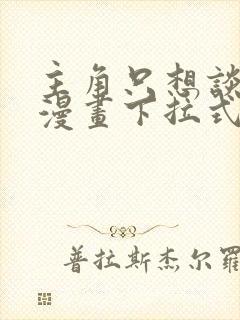 主角只想談
漫畫下拉式
普拉斯杰尔羅